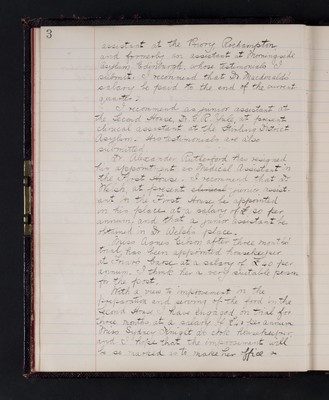 3
assistant at the Priory Roehampton
and formerly an assistant at Morningside
Asylum Edinburgh, whose testimonials I
submit. I recommend that Dr Macdonald's
salary be paid to the end of the current
quarter.
I recommend as junior assistant at
the Second House, Dr. C. R. Yule, at present
clinical assistant at the Stirling District
Asylum. His testimonials are also
submitted.
Dr Alexander Rutherford has resigned
his appointment as Medical Assistant in
the First House. I recommend that Dr
Welsh, at present clinical junior assist-
ant in the First House be appointed
in his place at a salary of £ 80 per
annum, and that a junior assistant be
obtained in Dr Welsh's place.
Miss Agnes after three months'
trial has been appointed housekeeper
at House at a salary of £ 50 per
annum. I think her a very suitable person
for the post.
With a view to improvement in the
preparation and serving of the food in the
Second House I have engaged on trial for
three months at a salary of per annum
Miss Sydney as cook housekeeper,
and I hope that the improvement will
be so marked as to make her office a